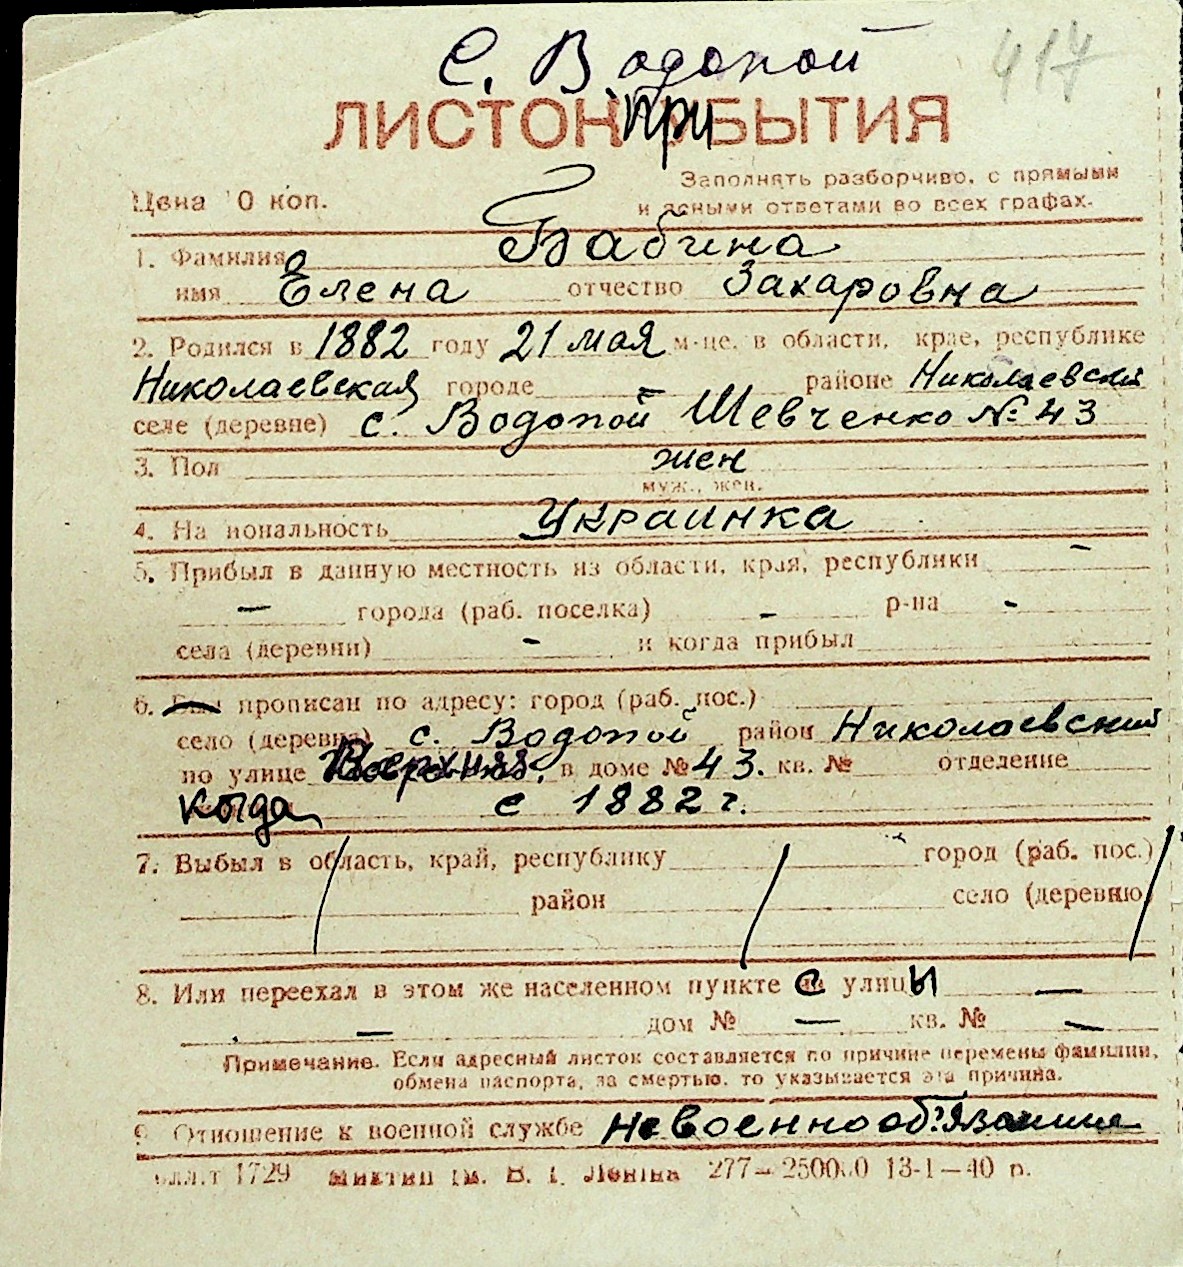 с. Водопой
417
ЛИСТОК ПРИБЫТИЯ
Заполнять разборчиво, с прямыми
Цена 10 коп. и ясными ответами во всех графах.
1. Фамилия Бабина
имя Елена отчество Захаровна
2. Родился в 1882 году 21 мая м-це, в области, крае, республике
Николаевская городе — районе Николаевский
селе (деревне) с. Водопой Шевченко № 43
3. Пол жен
муж., жен.
4. Национальность Украинка
5. Прибыл в данную местность из области, края, республики —
— города (раб. поселка) — р-на -
села (деревни) - и когда прибыл
6. прописан по адресу: город (раб. пос.)
село (деревня) с. Водопой район Николаевский
по улице в доме № 43. кв. № отделение
когда с 1882 г.
7. Выбыл в область, край, республику город (раб. пос.)
район село (деревню)
8. Или переехал в этом же населенном пункте с улицы —
— дом № — кв. № —
Примечание. Если адресный листок составляется по причине перемены фамилии,
обмена паспорта, за смертью, то указывается эта причина.
9. Отношение к военной службе
1729 им. В. І. Леніна 277—250000 13-1—40 р.